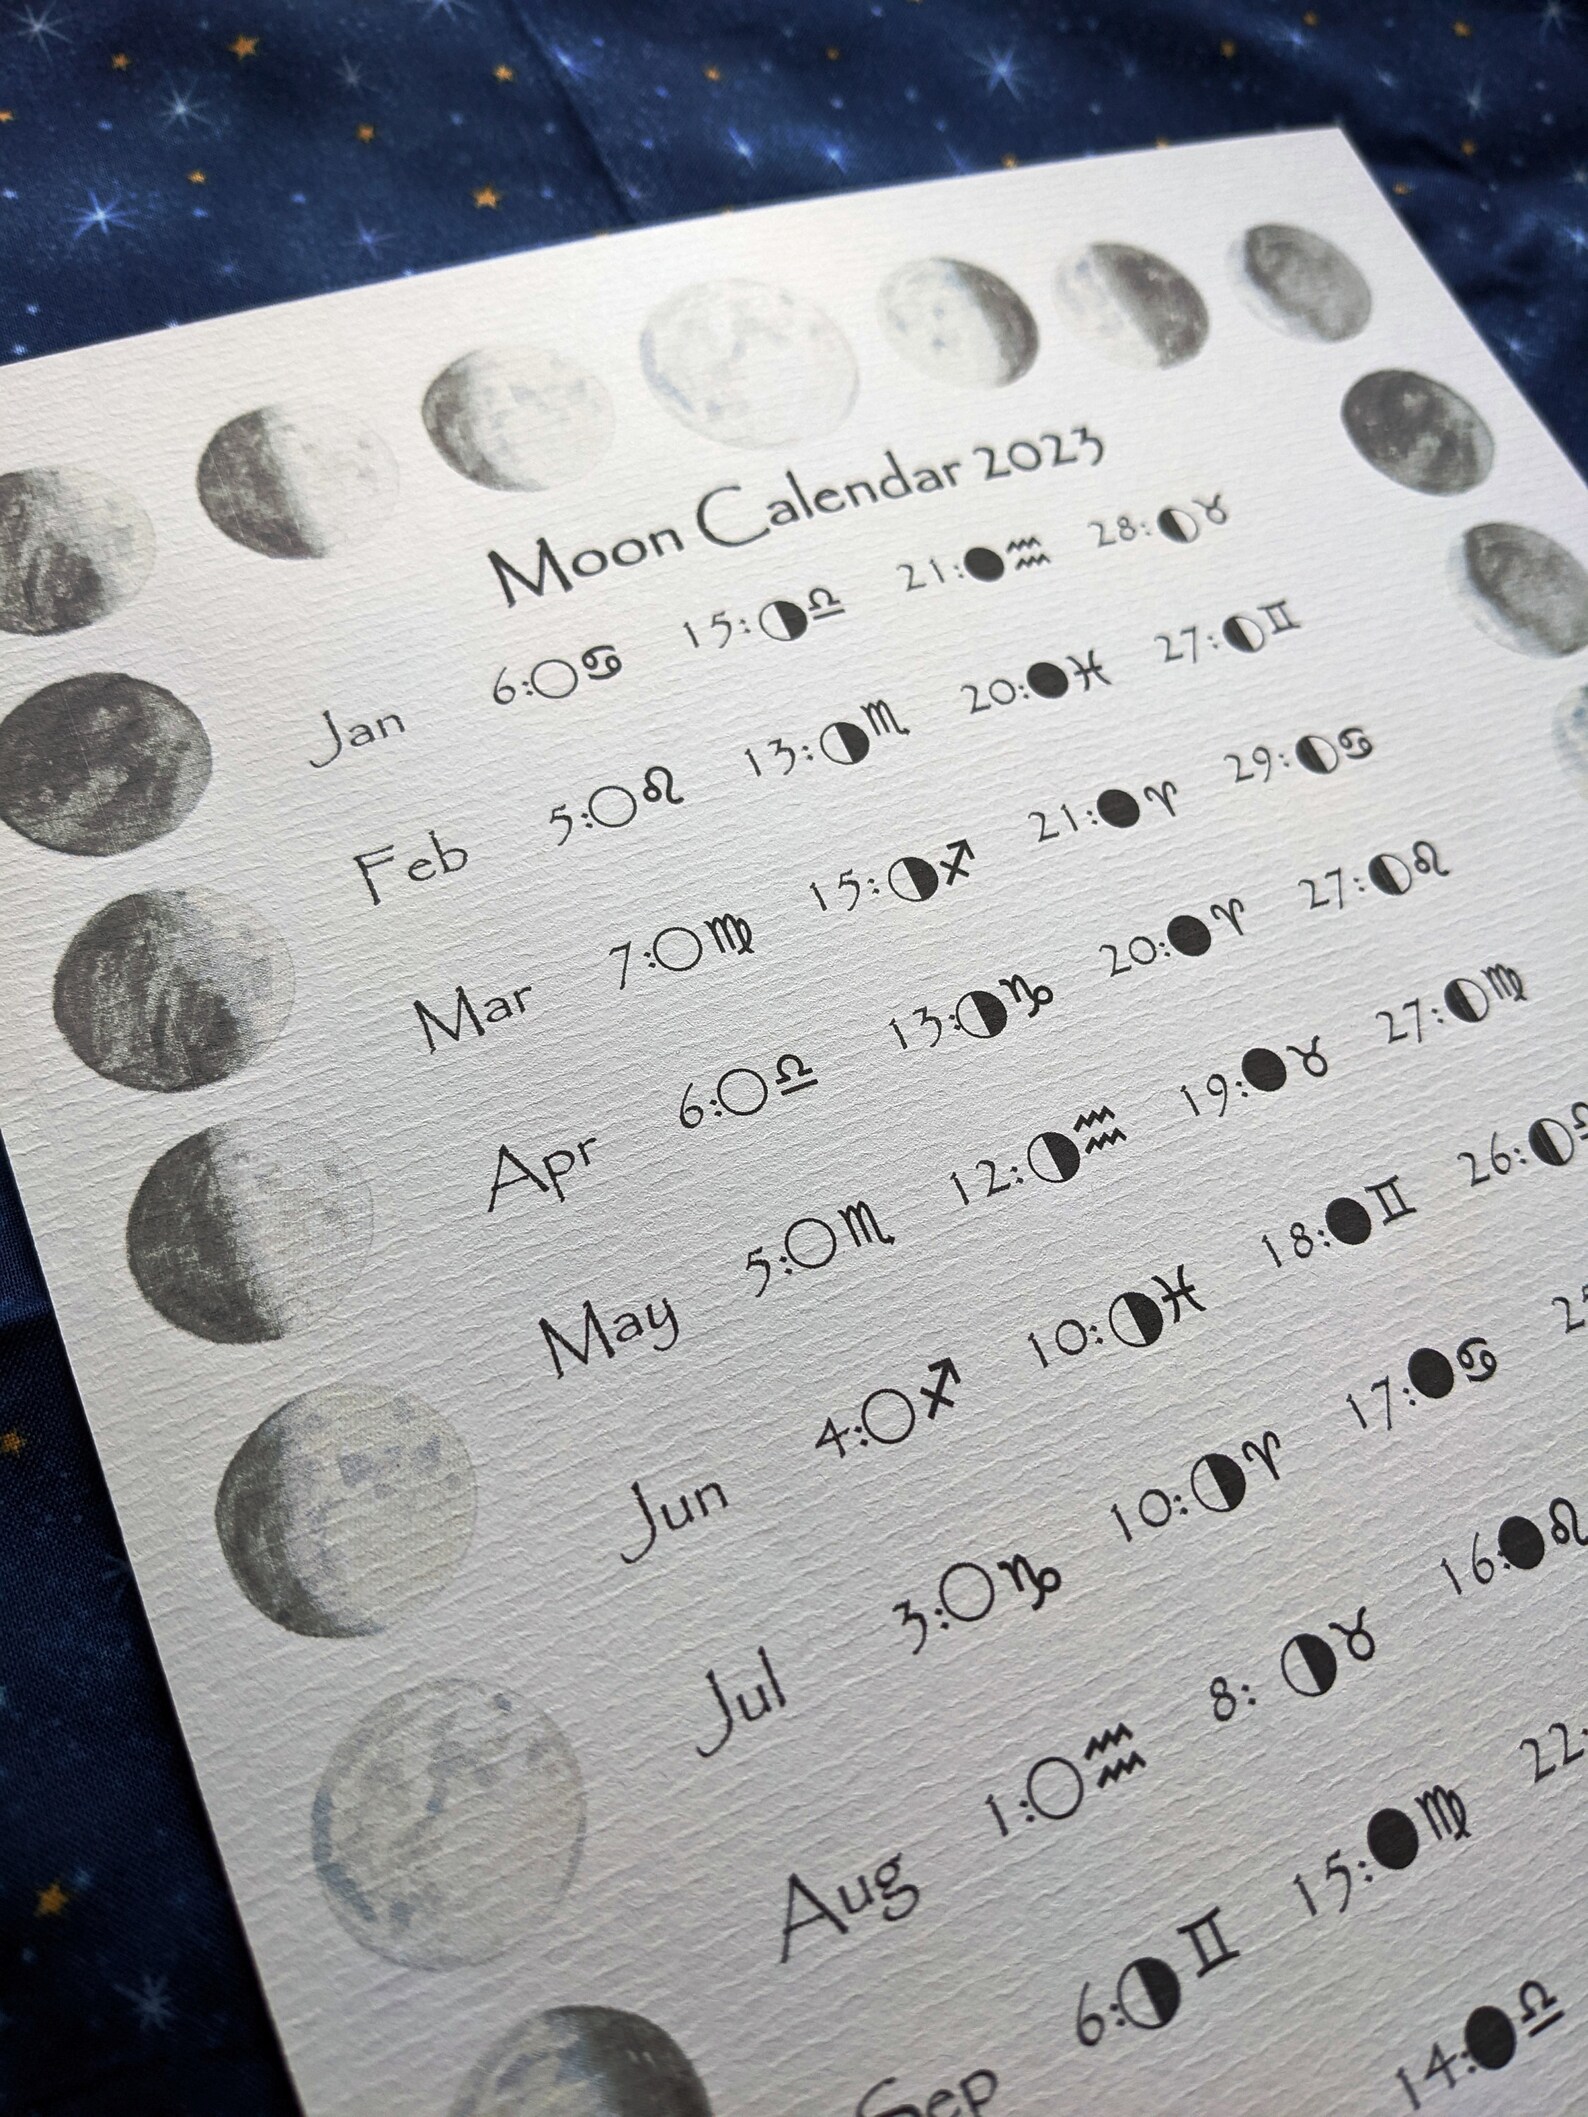 Moon Calendar 2023
Jan 6:○♋ 15:◑♎ 21:●♒ 28:◐♉
Feb 5:○♌ 13:◑♏ 20:●♓ 27:◐♊
Mar 7:○♍ 15:◑♐ 21:●♈ 29:◐♋
Apr 6:○♎ 13:◑♑ 20:●♈ 27:◐♌
May 5:○♏ 12:◑♒ 19:●♉ 27:◐♍
Jun 4:○♐ 10:◑♓ 18:●♊ 26:◐♎
Jul 3:○♑ 10:◑♈ 17:●♋
Aug 1:○♒ 8:◑♉ 16:●♌
Sep 6:◑♊ 15:●♍ 22:
14:●♎